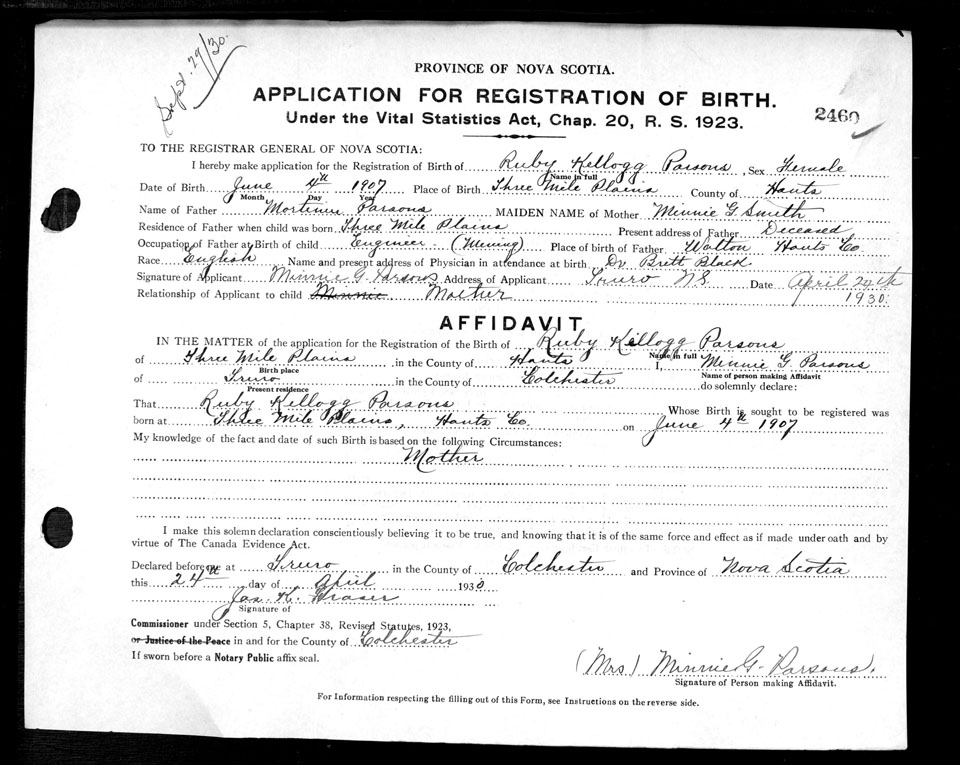 Sept. 29/30.
PROVINCE OF NOVA SCOTIA.
APPLICATION FOR REGISTRATION OF BIRTH.
2460
Under the Vital Statistics Act, Chap. 20, R. S. 1923.
TO THE REGISTRAR GENERAL OF NOVA SCOTIA:
I hereby make application for the Registration of Birth of Ruby Kellogg Parsons, Sex Female
Name in full
Date of Birth June 4th 1907 Place of Birth Three Mile Plains County of Hants
Month Day Year
Name of Father Mortimer Parsons MAIDEN NAME of Mother Minnie G. Smith
Residence of Father when child was born Three Mile Plains Present address of Father Deceased
Occupation of Father at Birth of child Engineer (Mining) Place of birth of Father Walton Hants Co
Race English Name and present address of Physician in attendance at birth Dr Britt Black
Signature of Applicant Minnie G Parsons Address of Applicant Truro NS. Date April 24th
Relationship of Applicant to child Minnie Mother 1930.
AFFIDAVIT
IN THE MATTER of the application for the Registration of the Birth of Ruby Kellogg Parsons
Name in full
of Three Mile Plains in the County of Hants I, Minnie G Parsons
Birth place Name of person making Affidavit
of Truro in the County of Colchester do solemnly declare:
Present residence
That Ruby Kellogg Parsons Whose Birth is sought to be registered was
born at Three Mile Plains, Hants Co. on June 4th 1907
My knowledge of the fact and date of such Birth is based on the following Circumstances:
Mother
I make this solemn declaration conscientiously believing it to be true, and knowing that it is of the same force and effect as if made under oath and by
virtue of The Canada Evidence Act.
Declared before me at Truro in the County of Colchester and Province of Nova Scotia
this 24th day of April 1930
Jas. K. Fraser
Signature of
Commissioner under Section 5, Chapter 38, Revised Statutes, 1923,
or Justice of the Peace in and for the County of Colchester
If sworn before a Notary Public affix seal.
(Mrs) Minnie G. Parsons.
Signature of Person making Affidavit.
For Information respecting the filling out of this Form, see Instructions on the reverse side.